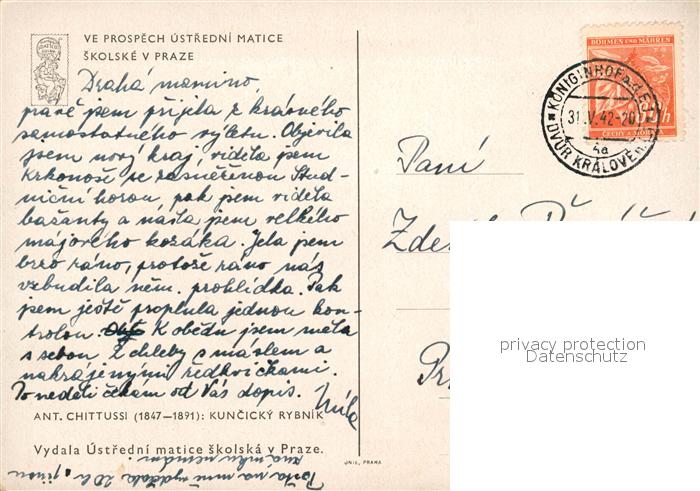 VE PROSPĚCH ÚSTŘEDNÍ MATICE
ŠKOLSKÉ V PRAZE
Drahá mamino,
právě jsem přijela z krásného
samostatného výletu. Objevila
jsem nový kraj, viděla jsem
Krkonoše se zasněženou Stud-
niční horou, pak jsem viděla
bažanty a našla jsem velkého
májového kozáka. Jela jsem
brzo ráno, protože ráno nás
vzbudila něm. prohlídka. Pak
jsem ještě proplula jednou kon-
trolou. K obědu jsem měla
s sebou 2 chleby s máslem a
nakrájenými ředkvičkami.
Po neděli čekám od Vás dopis.
ANT. CHITTUSSI (1847—1891): KUNČICKÝ RYBNÍK
Vydala Ústřední matice školská v Praze.
UNIE, PRAHA
BÖHMEN UND MÄHREN
ČECHY A MORAVA
KÖNIGINHOF a.d. ELBE
31.V.42-20
4a
DVŮR KRÁLOVÉ
Paní
privacy protection
Datenschutz